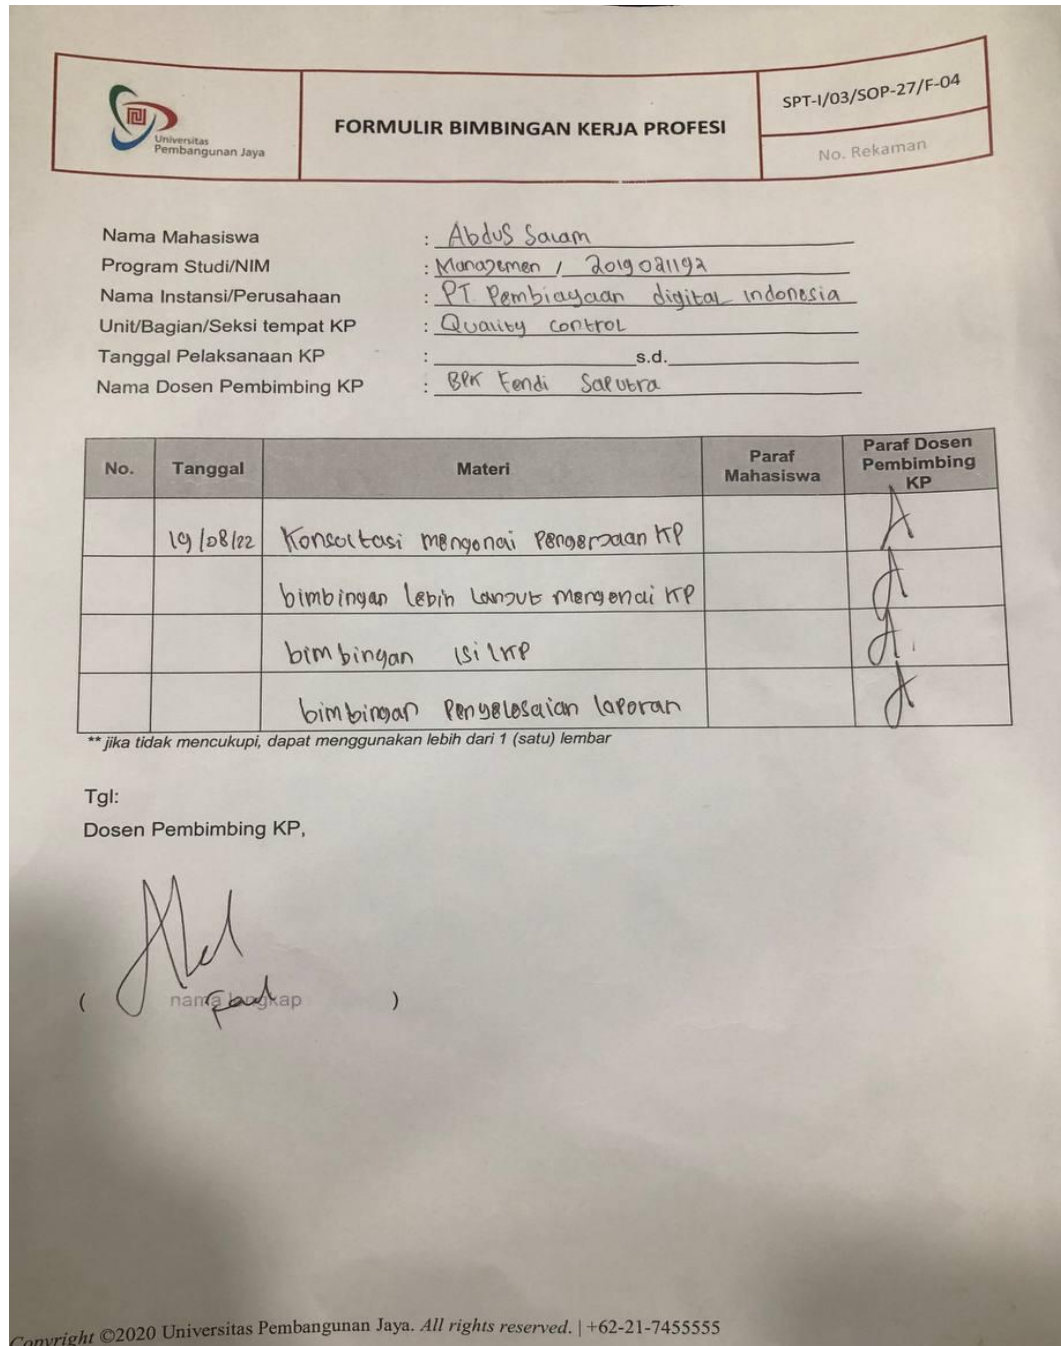 Universitas
Pembangunan Jaya
FORMULIR BIMBINGAN KERJA PROFESI
SPT-I/03/SOP-27/F-04
No. Rekaman
Nama Mahasiswa : Abdus Salam
Program Studi/NIM : Manajemen / 2019021192
Nama Instansi/Perusahaan : PT. Pembiayaan digital indonesia
Unit/Bagian/Seksi tempat KP : Quality control
Tanggal Pelaksanaan KP : s.d.
Nama Dosen Pembimbing KP : BPK Fendi Saputra
No. Tanggal Materi Paraf Mahasiswa Paraf Dosen Pembimbing KP
19/08/22 Konsultasi mengenai Pengerjaan KP
bimbingan lebih lanjut mengenai KP
bimbingan isi LKP
bimbingan Penyelesaian laporan
** jika tidak mencukupi, dapat menggunakan lebih dari 1 (satu) lembar
Tgl:
Dosen Pembimbing KP,
( nama lengkap )
Copyright ©2020 Universitas Pembangunan Jaya. All rights reserved. | +62-21-7455555